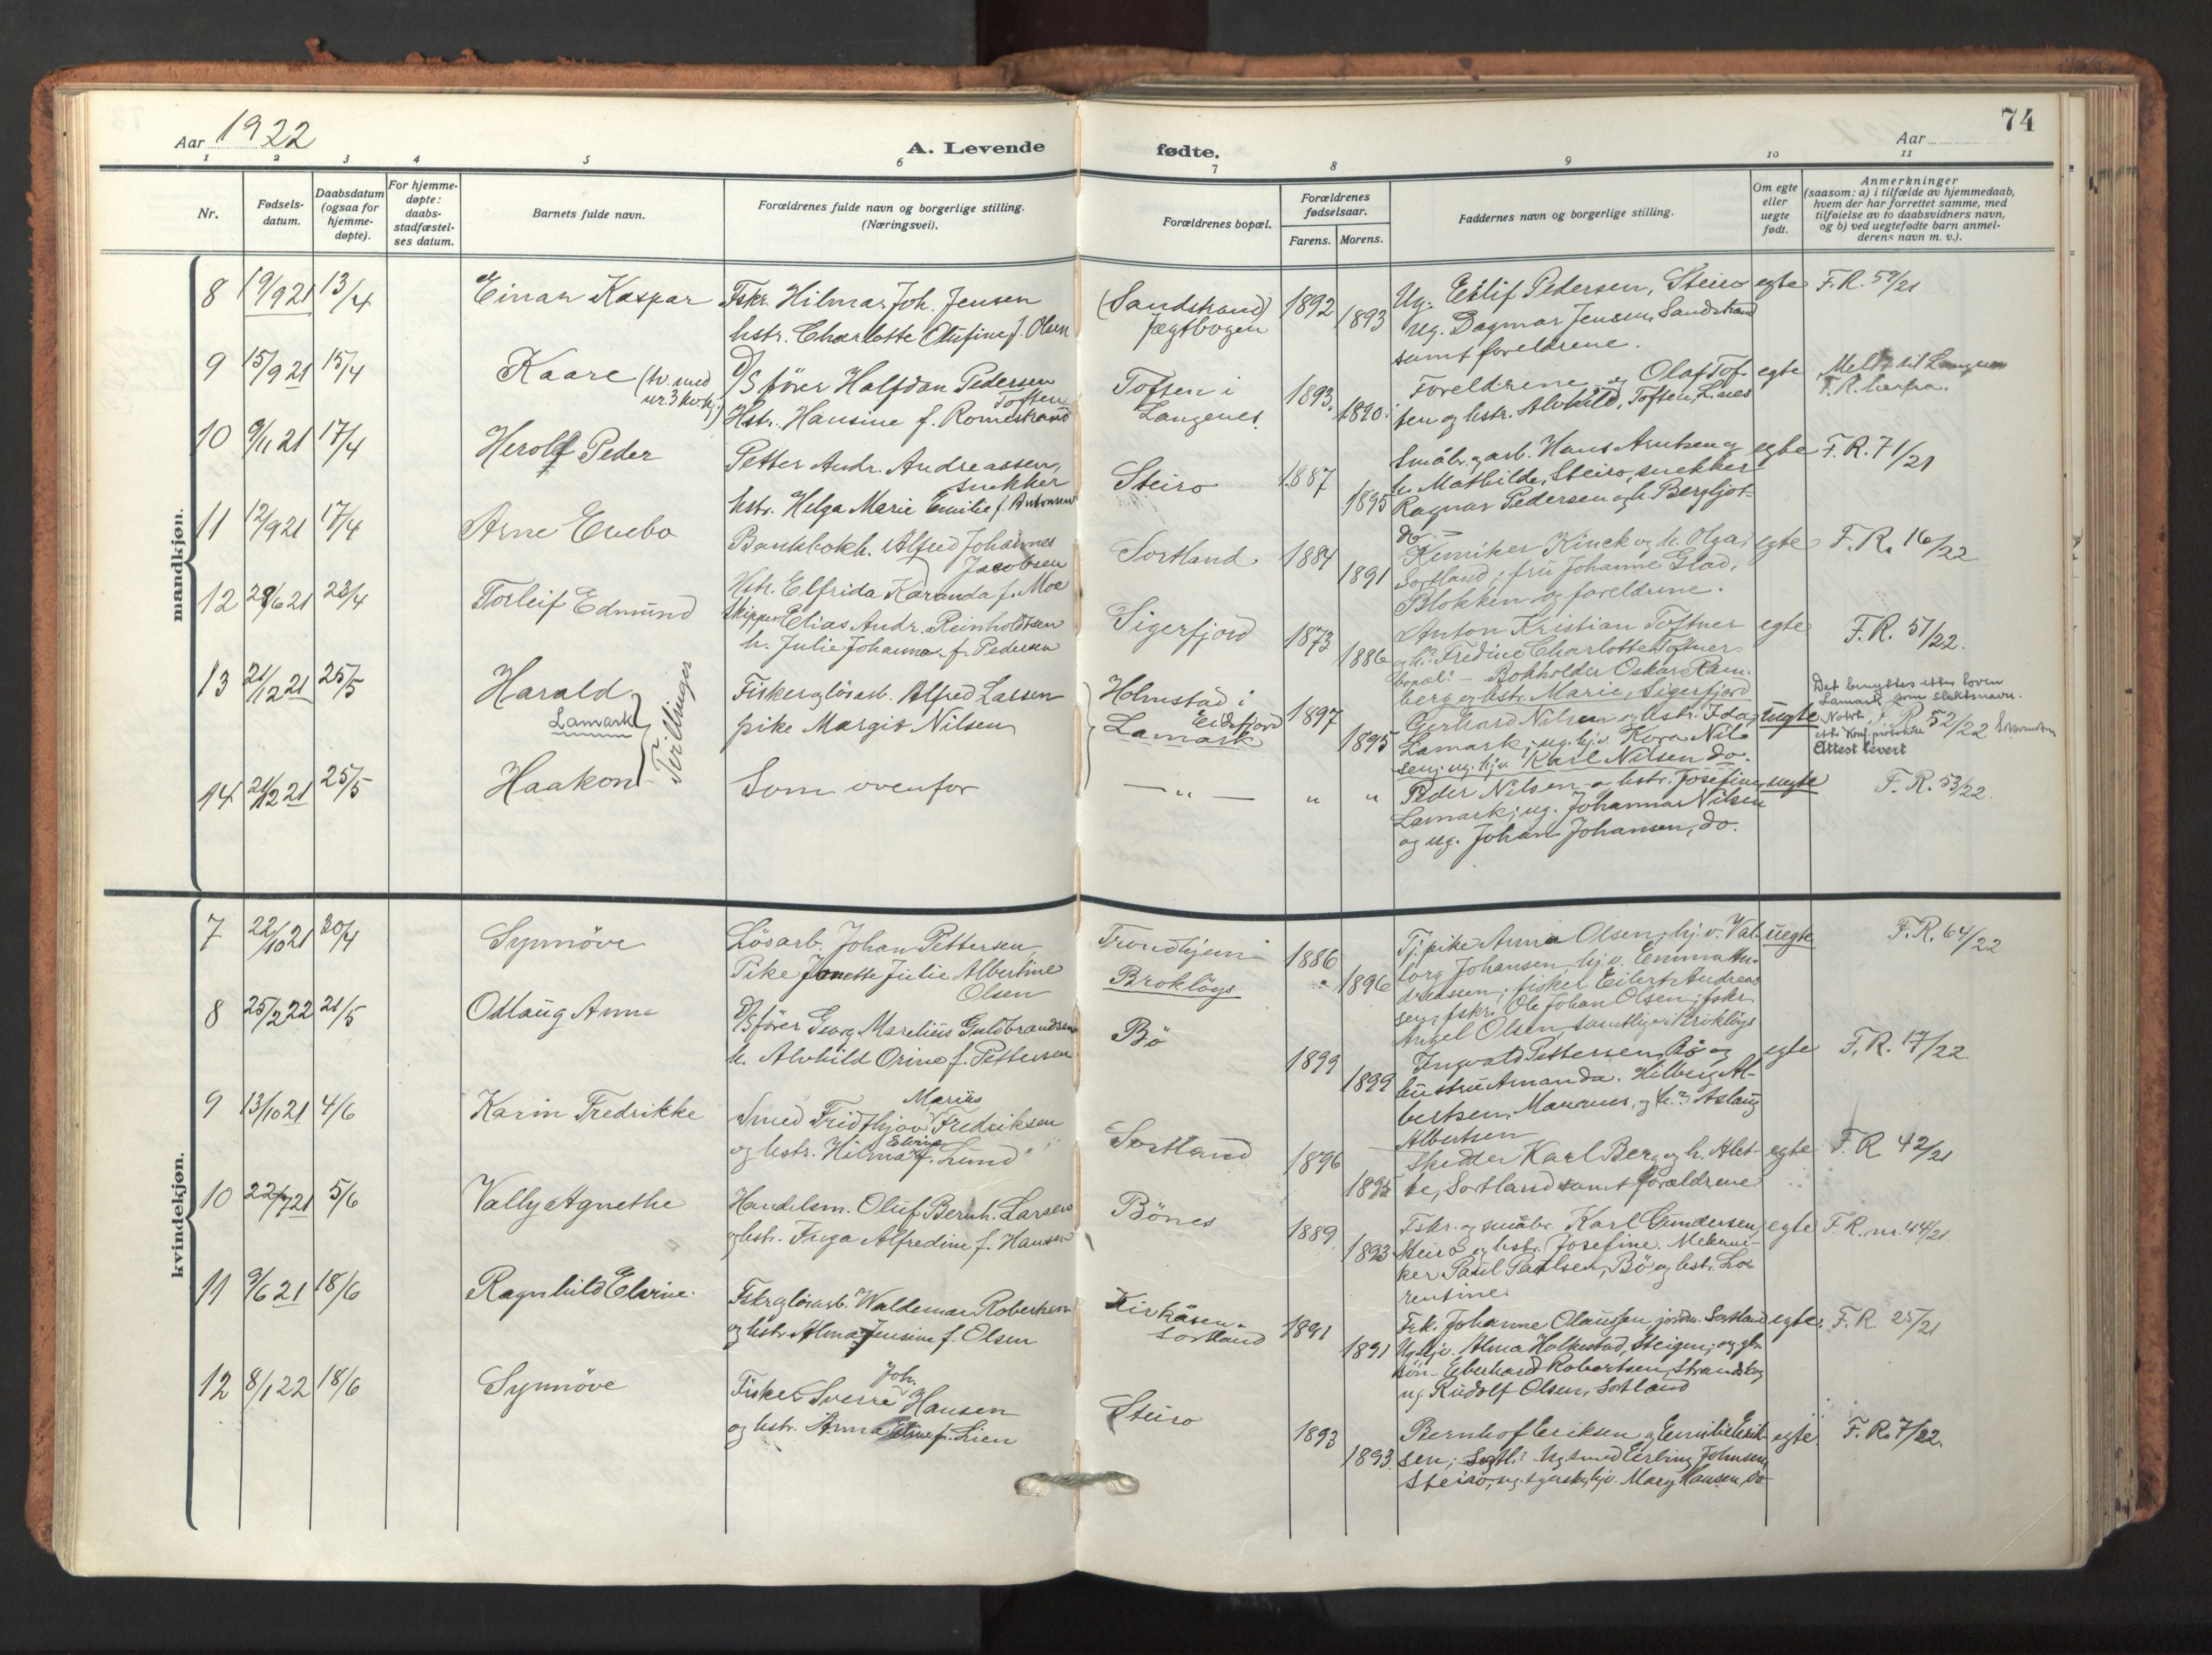 74
Aar 1922
A. Levende fødte.
Aar
1 2 3 4 5 6 7 8 9 10 11
Nr.
Fødsels-
datum.
Daabsdatum
(ogsaa for
hjemme-
døpte).
For hjemme-
døpte:
daabs-
stadfæstel-
ses datum.
Barnets fulde navn.
Forældrenes fulde navn og borgerlige stilling.
(Næringsvei).
Forældrenes bopæl.
Forældrenes
fødselsaar.
Farens. Morens.
Faddernes navn og borgerlige stilling.
Om egte
eller
uegte
født.
Anmerkninger
(saasom: a) i tilfælde av hjemmedaab,
hvem der har forrettet samme, med
tilføielse av to daabsvidners navn,
og b) ved uegtefødte barn anmel-
derens navn m. v.).
mandkjøn.
8 19/9 21 13/4
Einar Kaspar
Fskr. Hilmar Joh. Jensen
hstr. Charlotte Olufine f. Olsen
(Sandstrand)
Jægtbogen
1892 1893
Ug. Eilif Pedersen, Steiro
ug. Dagmar Jensen, Sandstrand
samt foreldrene.
egte
F.R. 59/21
9 15/9 21 15/4
Kaare
D/S fører Halfdan Pedersen
Toften
Hstr. Hansine f. Romestrand
Toften i
Langenes
1893 1890
Foreldrene og Olaf Tof-
ten og hstr. Alvhild, Toften, L.nes
egte
F.R. herfra.
10 9/11 21 17/4
Herolf Peder
Petter Andr. Andreassen,
snekker
hstr. Helga Marie Emilie f. Antonsen
Steiro
1887 1895
Småbr. og arb. Hans Arntsen og
h. Mathilde, Steiro, snekker
Ragnar Pedersen og h. Bergljot
do.
egte
F.R. 71/21
11 12/9 21 17/4
Arne Enebo
Bankbokh. Alfred Johannes
Jacobsen
Hstr. Elfrida Karanda f. Moe
Sortland
1884 1891
Kemiker Kinck og h. Olga,
Sortland; fru Johanne Glad,
Blokken og foreldrene.
egte
F.R. 16/22
12 29/6 21 23/4
Torleif Edmund
Skipper Elias Andr. Reinholdtsen
h. Julie Johanna f. Pedersen
Sigerfjord
1873 1886
Anton Kristian Toftner
og h. Fredine Charlotte Toftner
bopæl: – Bokholder Oskar Ram-
berg og hstr. Marie, Sigerfjord
egte
F.R. 51/22.
13 21/12 21 25/5
Harald
Lamark
Tvillinger
Fisker og løsarb. Alfred Larsen
pike Margit Nilsen
Holmstad i
Eidsfjord
Lamark
1897 1895
Gerhard Nilsen og hstr. Ida,
Lamark; ug. hj.v. Kora Nil-
sen; ug. hj.v. Karl Nilsen do.
uegte
Det benyttes etter loven
Lamark som slektsnavn.
F.R. 52/22
Attest levert
14 21/12 21 25/5
Haakon
Som ovenfor
— „ —
„ „
Peder Nilsen og hstr. Josefine,
Lamark; ug. Johanna Nilsen
og ug. Johan Johansen, do.
uegte
F.R. 53/22.
kvindekjøn.
7 22/10 21 30/4
Synnöve
Lösarb. Johan Pettersen
Pike Jonette Julie Albertine
Olsen
Trondhjem
Brokløys
1886 1896
Tj. pike Anna Olsen, hj.v. Val-
borg Johansen, hj.v. Emma An-
dreassen; fisker Eilert Andreas-
sen; fskr. Ole Johan Olsen; fskr.
Angel Olsen, samtlige Brokløys
uegte
F.R. 64/22
8 25/2 22 21/5
Odlaug Anna
D/S fører Georg Marelius Guldbrandsen
h. Alvhild Orine f. Pettersen
Bö
1899 1899
Ingvald Pettersen, Bö og
hustru Amanda. Hilberg Al-
bertsen, Maurnes, og h. Aslaug
Albertsen
egte
F.R. 17/22
9 13/10 21 4/6
Karin Fredrikke
Marius
Smed Fridthjov Fredriksen
og hstr. Hilma Elvine f. Lund
Sortland
1896 1895
Skredder Karl Berg og h. Alet-
te, Sortland samt foreldrene
egte
F.R. 42/21
10 22/7 21 5/6
Vally Agnethe
Handelsm. Oluf Bernh. Larsen
og hstr. Inga Alfredine f. Hansen
Bönes
1889 1893
Fskr. og småbr. Karl Gundersen,
Steiro og hstr. Josefine. Mekani-
ker Paul Paulsen, Bö og hstr. Lo-
rentine
egte
F.R. nr. 44/21
11 9/6 21 18/6
Ragnhild Elvine
Fskr og lösarb. Waldemar Robertsen
og hstr. Alma Jensine f. Olsen
Kirkåsen
Sortland
1891 1891
Frk. Johanne Olaussen, jordm. Sortland
Ug. hj.v. Alma Holkestad, Steigen; og gb.
sön Eberhard Robertsen, Strandskog
ug. Rudolf Olsen, Sortland
egte
F.R. 25/21
12 8/1 22 18/6
Synnöve
Joh.
Fisker Sverre Hansen
og hstr. Anna Eline f. Lien
Steiro
1893 1893
Bernhof Eriksen og Emilie Erik-
sen, Sortl. Ug. smed Erling Johnsen,
Steiro, ug. syersk, hj.v. Mary Hansen, do
egte
F.R. 7/22.